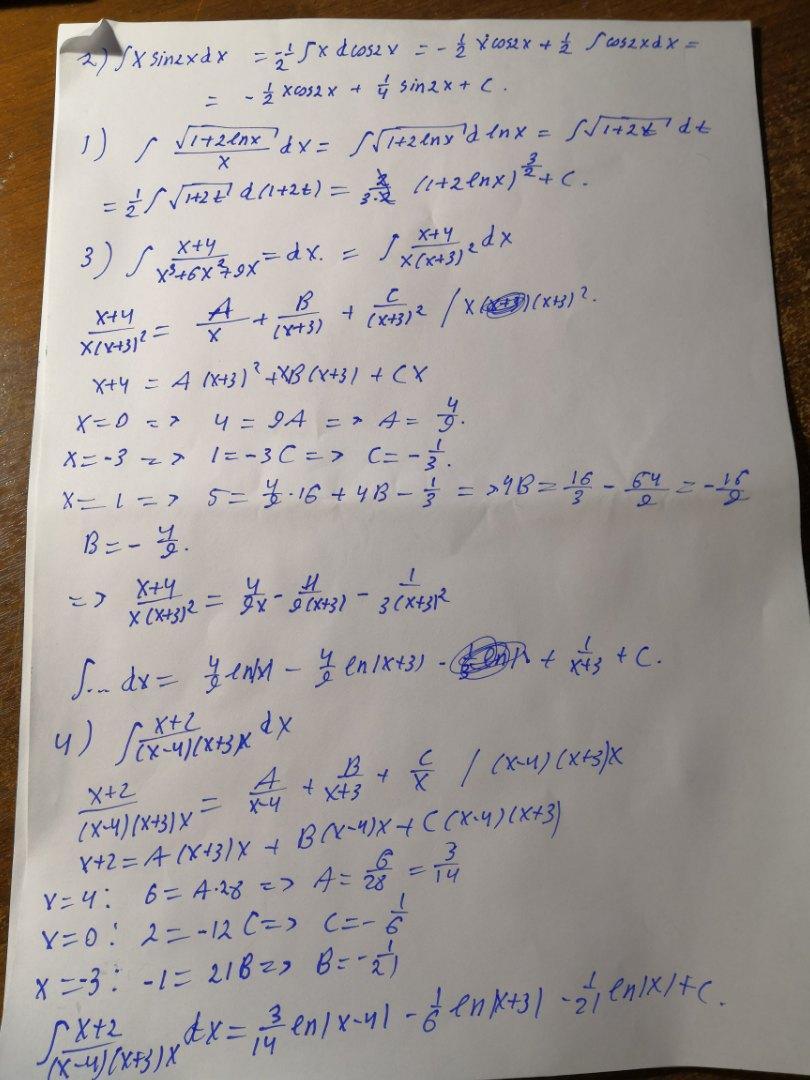 2) ∫ x sin2x dx = -1/2 ∫ x d cos2x = -1/2 x cos2x + 1/2 ∫ cos2x dx =
= -1/2 x cos2x + 1/4 sin2x + C.
1) ∫ √(1+2lnx)/x dx = ∫ √(1+2lnx) d lnx = ∫ √(1+2t) dt
= 1/2 ∫ √(1+2t) d(1+2t) = 2/(3·2) (1+2lnx)^(3/2) + C.
3) ∫ (x+4)/(x³+6x²+9x) = dx. = ∫ (x+4)/(x(x+3)²) dx
(x+4)/(x(x+3)²) = A/x + B/(x+3) + C/(x+3)² / x (x+3)².
x+4 = A(x+3)² + xB(x+3) + Cx
x=0 => 4 = 9A => A = 4/9.
x=-3 => 1 = -3C => C = -1/3.
x=1 => 5 = 4/9·16 + 4B - 1/3 => 4B = 16/3 - 64/9 = -16/9
B = -4/9.
=> (x+4)/(x(x+3)²) = 4/9x - 4/9(x+3) - 1/3(x+3)²
∫... dx = 4/9 ln|x| - 4/9 ln|x+3| + 1/(x+3) + C.
4) ∫ (x+2)/((x-4)(x+3)x) dx
(x+2)/((x-4)(x+3)x) = A/(x-4) + B/(x+3) + C/x / (x-4)(x+3)x
x+2 = A(x+3)x + B(x-4)x + C(x-4)(x+3)
x=4: 6 = A·28 => A = 6/28 = 3/14
x=0: 2 = -12C => C = -1/6
x=-3: -1 = 21B => B = -1/21
∫ (x+2)/((x-4)(x+3)x) dx = 3/14 ln|x-4| - 1/6 ln|x+3| - 1/21 ln|x| + C.